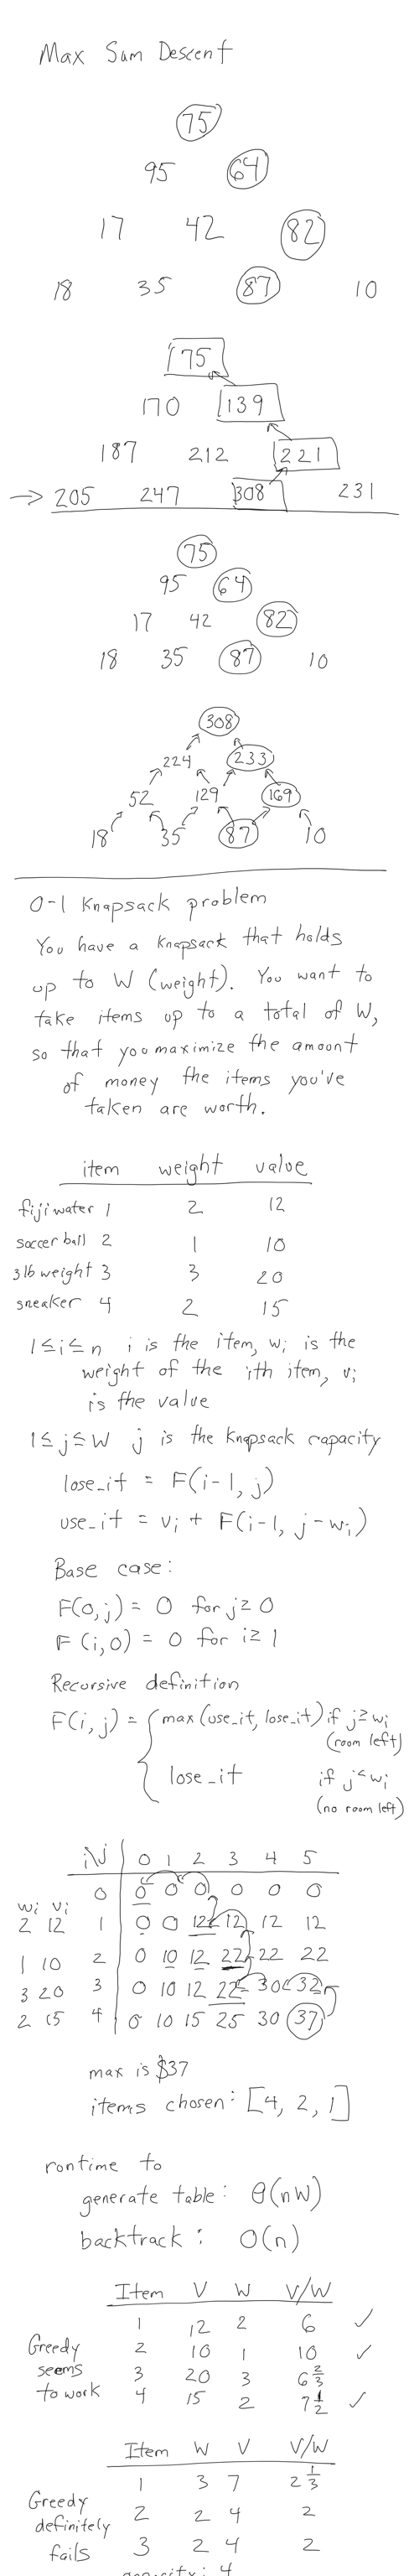 Max Sum Descent
75
95 64
17 42 82
18 35 87 10
175
170 139
187 212 221
→ 205 247 308 231
75
95 64
17 42 82
18 35 87 10
308
224 233
52 129 169
18 35 87 10
0-1 Knapsack problem
You have a knapsack that holds
up to W (weight). You want to
take items up to a total of W,
so that you maximize the amount
of money the items you've
taken are worth.
item weight value
fiji water 1 2 12
soccer ball 2 1 10
3lb weight 3 3 20
sneaker 4 2 15
1≤i≤n i is the item, wi is the
weight of the ith item, vi
is the value
1≤j≤W j is the knapsack capacity
lose_it = F(i-1, j)
use_it = vi + F(i-1, j-wi)
Base case:
F(0,j) = 0 for j≥0
F(i,0) = 0 for i≥1
Recursive definition
F(i,j) = { max(use_it, lose_it) if j≥wi
(room left)
lose_it if j<wi
(no room left)
i\j 0 1 2 3 4 5
0 0 0 0 0 0 0
wi vi
2 12 1 0 0 12 12 12 12
1 10 2 0 10 12 22 22 22
3 20 3 0 10 12 22 30 32
2 15 4 0 10 15 25 30 37
max is $37
items chosen: [4, 2, 1]
runtime to
generate table: θ(nW)
backtrack: O(n)
Item V W V/W
1 12 2 6 ✓
Greedy 2 10 1 10 ✓
seems 3 20 3 6 2/3
to work 4 15 2 7 1/2 ✓
Item W V V/W
1 3 7 2 1/3
Greedy
definitely 2 2 4 2
fails 3 2 4 2